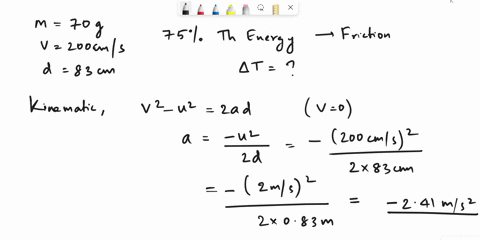 m = 70 g
V = 200 cm/s
d = 83 cm
75% Th Energy → Friction
ΔT = ?
Kinematic, V² - u² = 2ad (V=0)
a = -u² / 2d = - (200 cm/s)² / 2 × 83 cm
= - (2 m/s)² / 2 × 0.83 m = -2.41 m/s²